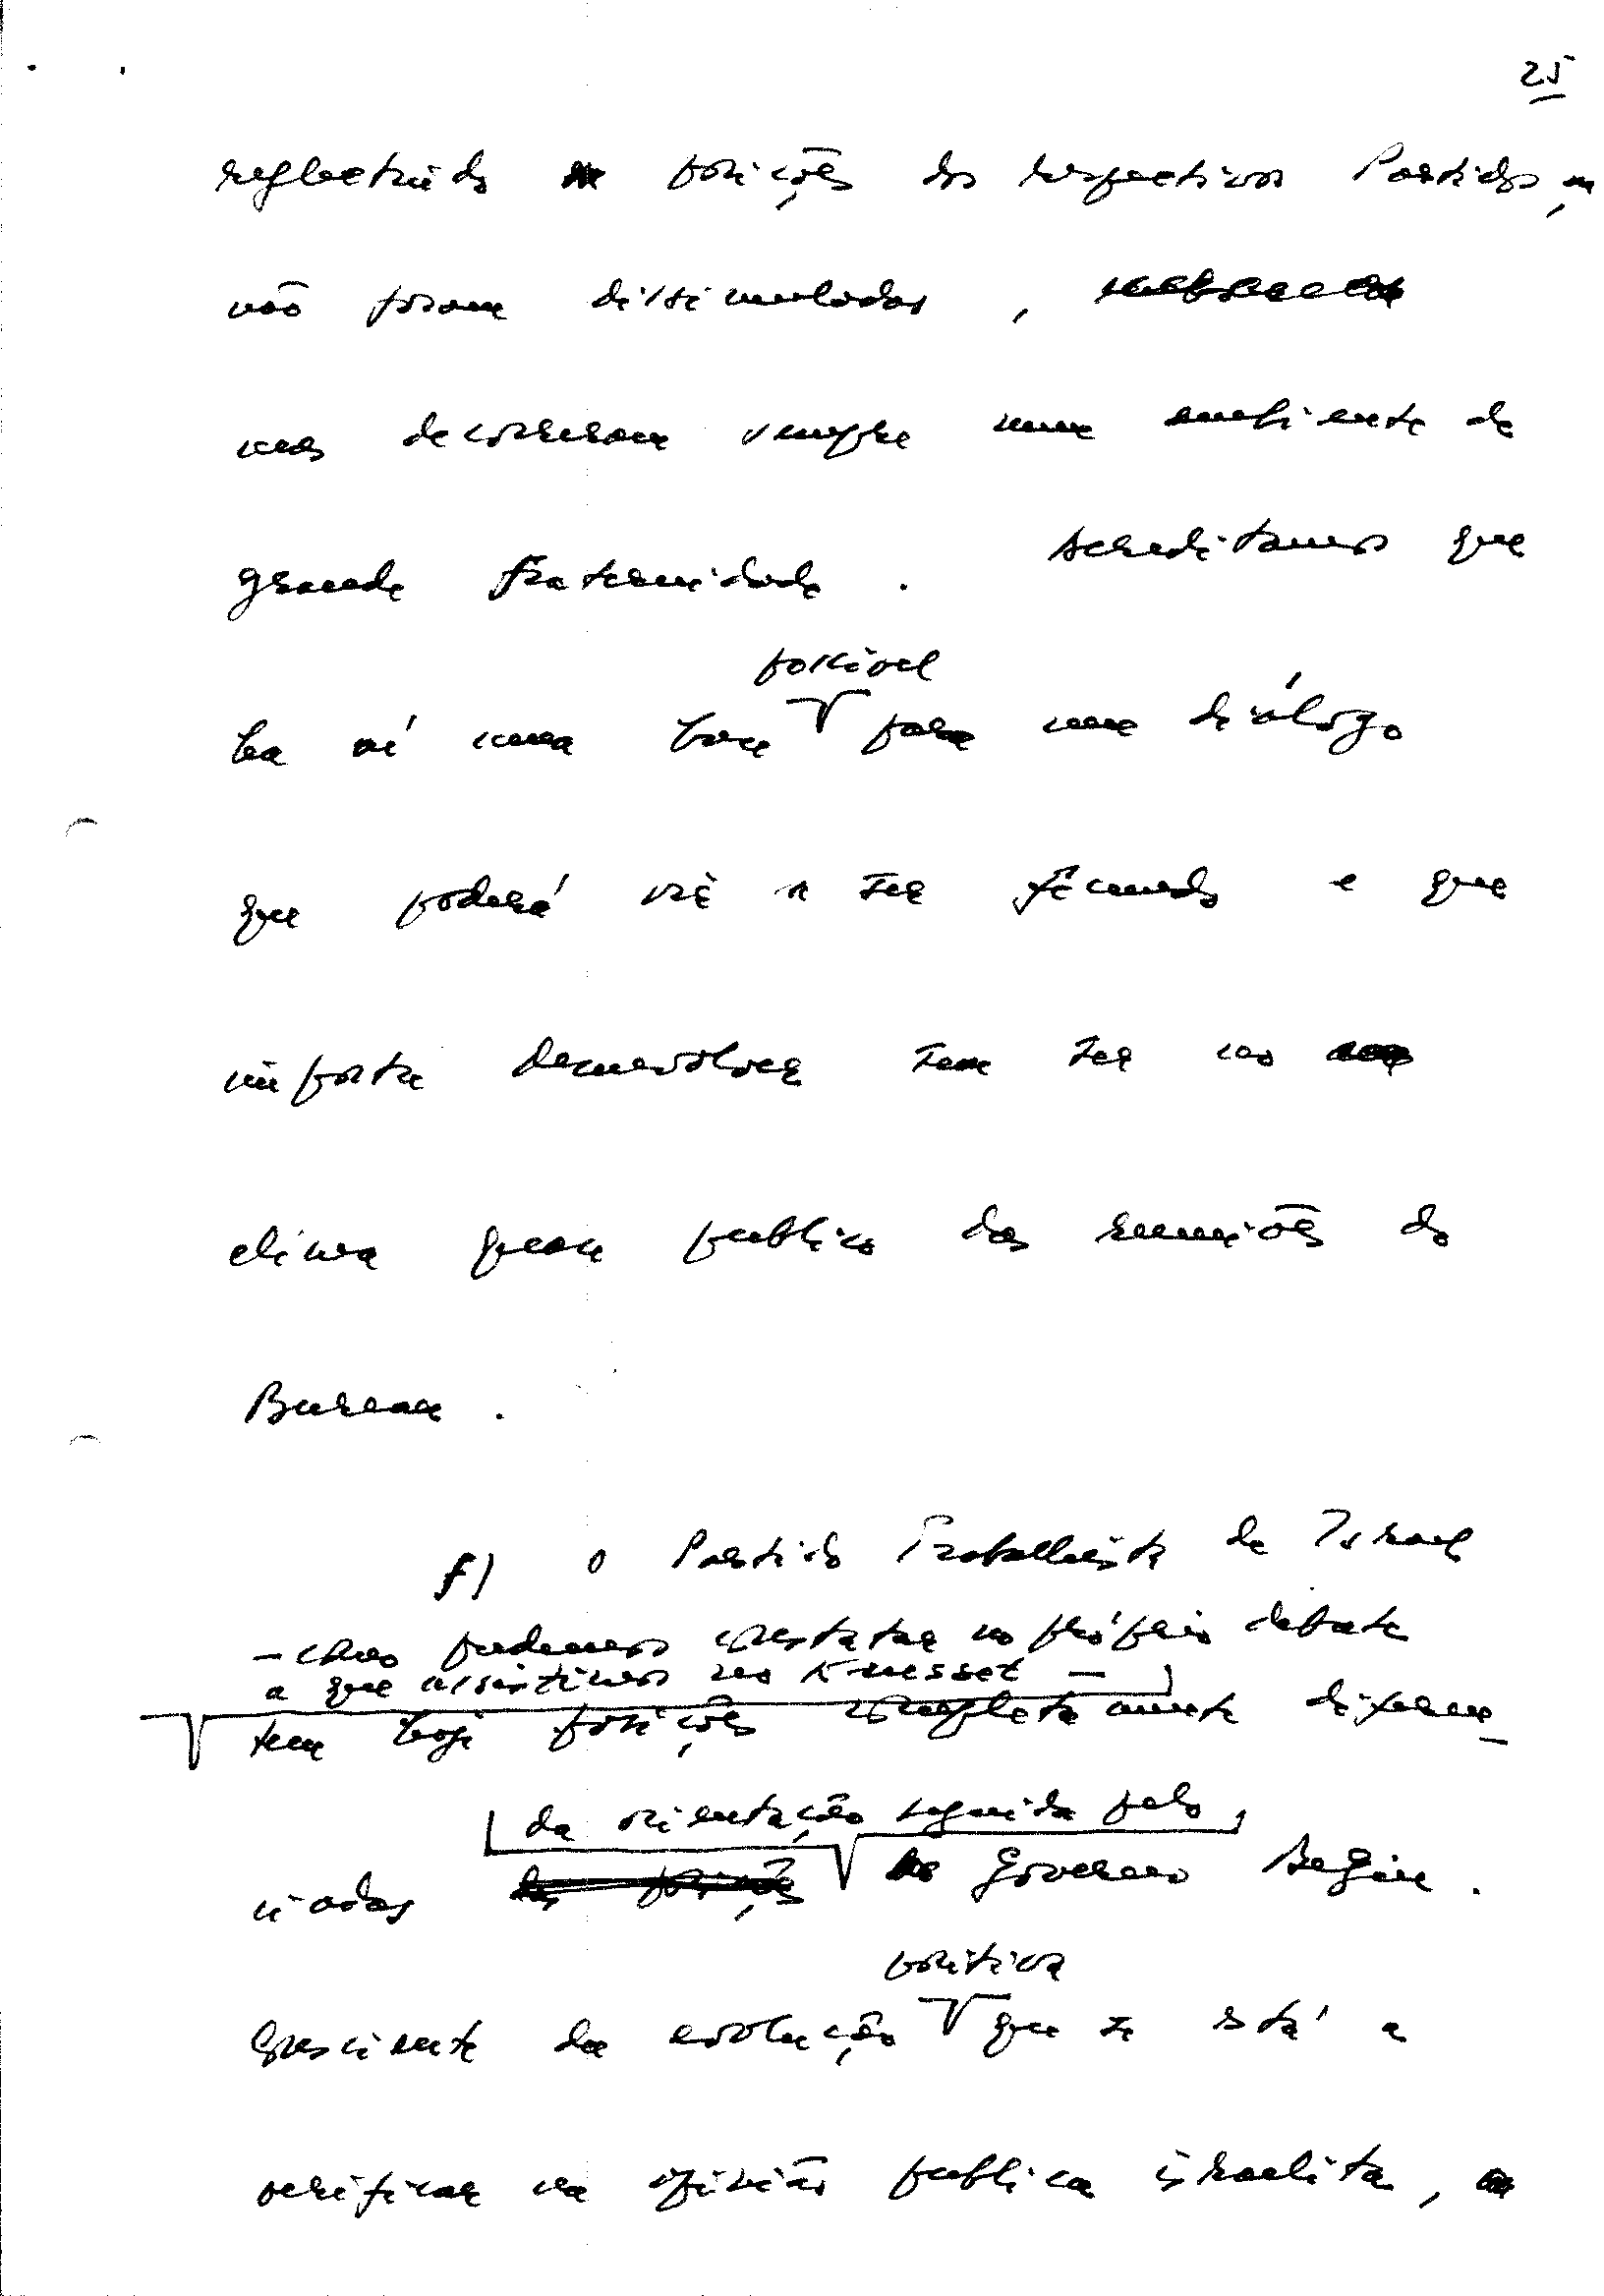 25
reflectindo posições dos respectivos Partidos,
não foram dissimuladas,
mas decorreram sempre num ambiente de
grande fraternidade. Acreditamos que
possivel
ha aí uma base para um diálogo
que poderá vir a ser fecundo e que
importa desenvolver sem ser no
clima quase publico das reuniões do
Bureau.
f) o Partido Trabalhista de Israel
- como pudemos constatar no próprio debate
a que assistimos no Knesset -
tem hoje posições completamente diferen-
ciadas
da orientação seguida pelo
Governo Begin.
politica
Consciente da evolução que se está a
verificar na opinião publica israelita,